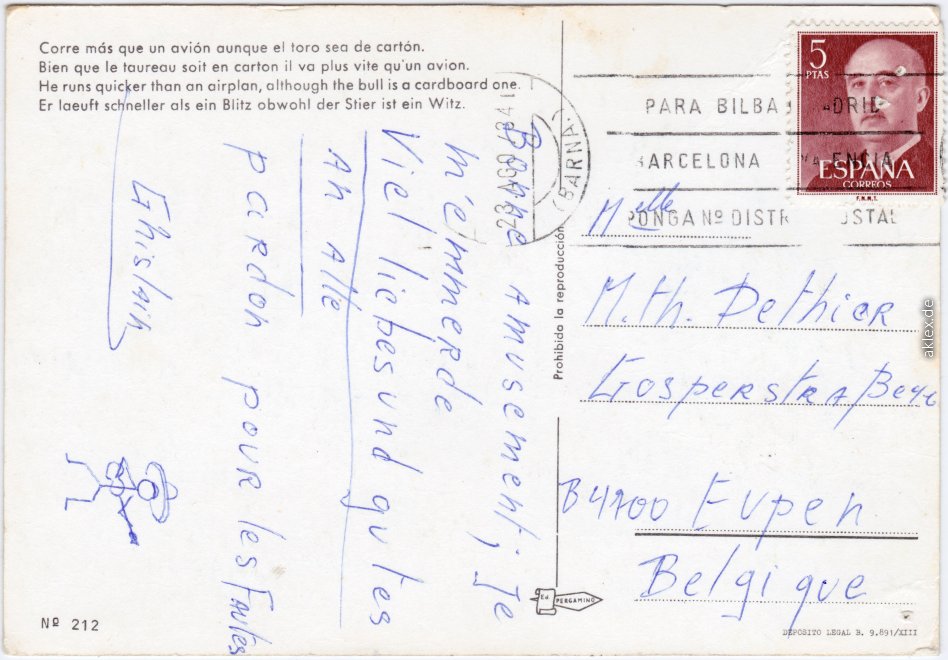 Corre más que un avión aunque el toro sea de cartón.
Bien que le taureau soit en carton il va plus vite qu'un avion.
He runs quicker than an airplan, although the bull is a cardboard one.
Er laeuft schneller als ein Blitz obwohl der Stier ist ein Witz.
Bonne amusement; Je
m'emmerde
Viel liebes und gutes
An Alle
pardon pour les Fautes
Ghislain
Nº 212
Prohibido la reproducción
Ed. PERGAMINO
23 AGO 84
(BARNA.)
PARA BILBA MADRID
BARCELONA VALENCIA
PONGA Nº DISTR POSTAL
5
PTAS
ESPAÑA
CORREOS
F.N.M.T.
Melle
M.th. Dethier
B4700 Eupen
Belgique
DEPOSITO LEGAL B. 9.891/XIII
aklex.de